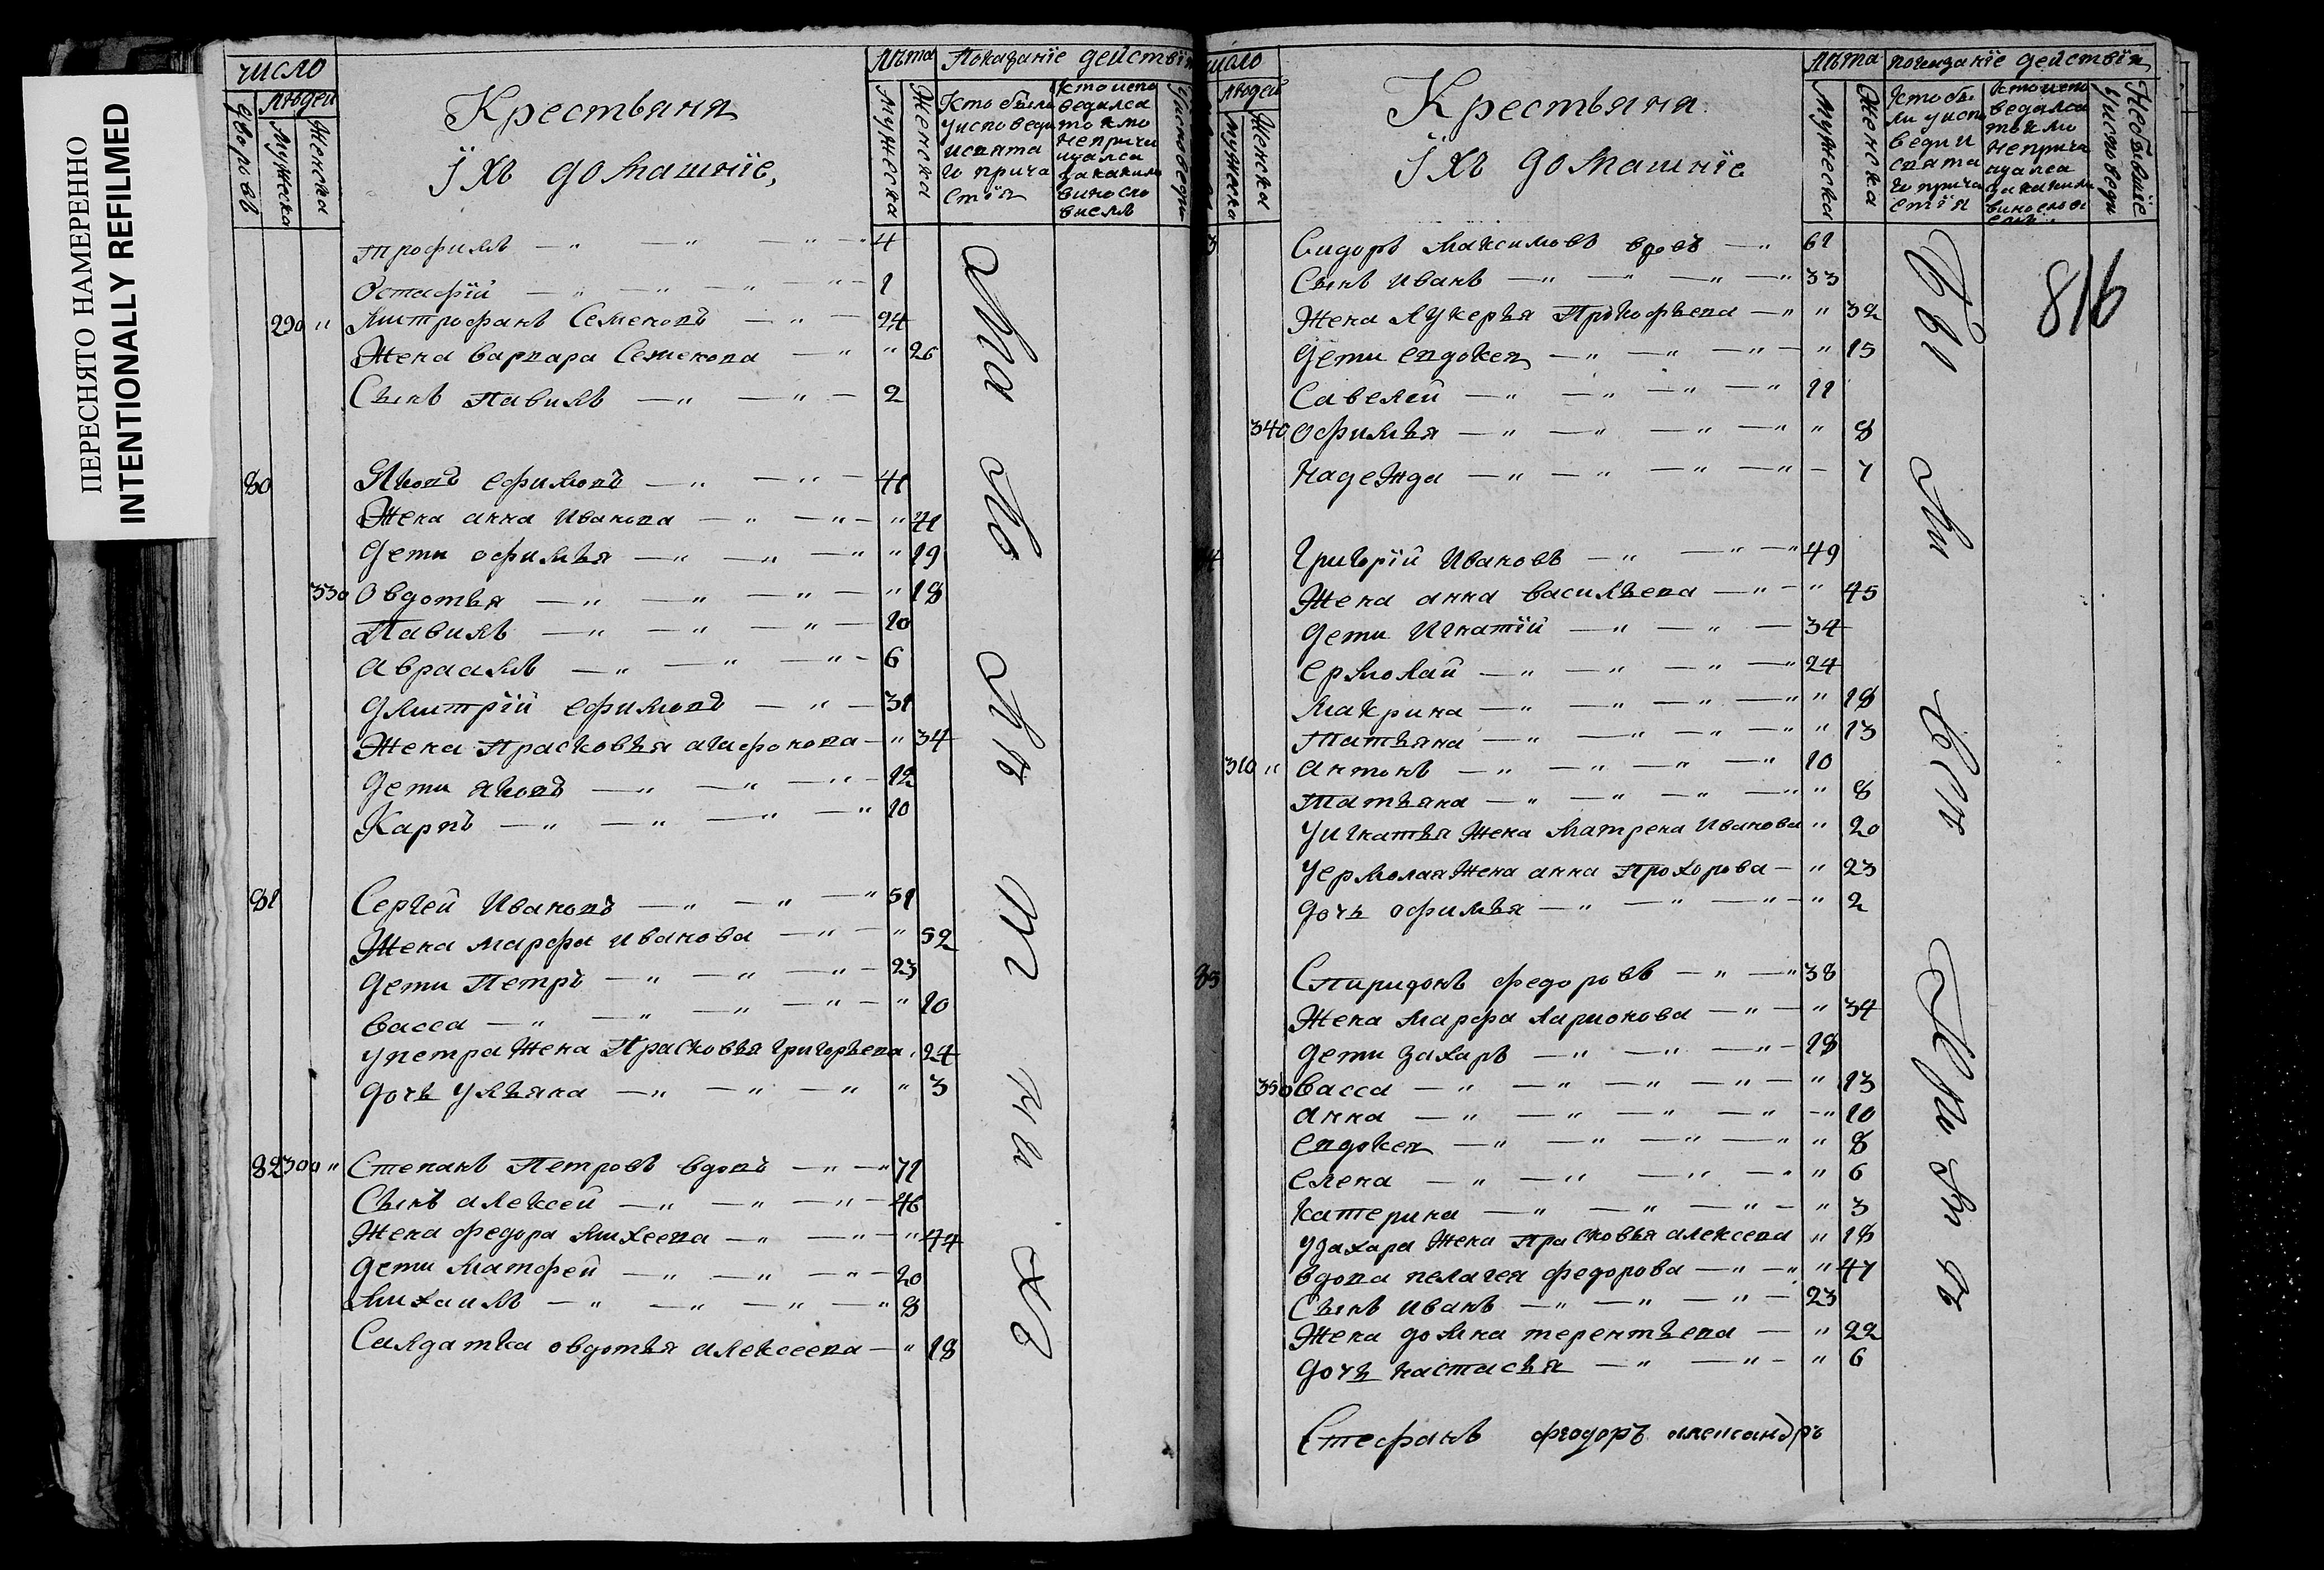 ПЕРЕСНЯТО НАМЕРЕННО
INTENTIONALLY REFILMED
число
людей
дворовъ
Мужеска
Женска
Крестьяня
Їхъ домашнїе,
лѣта
Мужеска
Женска
Показанїе действїя
Кто были у исповеди и свята го прича стїя
Кто испо ведался токмо непричи щался
Трофимъ — " — " — " — 4
Остафїй — " — " — " — 1
290 " Митрофанъ Семеновъ — " — 24
Жена варвара Семенова — " " 26
Сынъ павилъ — " — " — 2
80 Яковъ ефимовъ — " — " — 41
Жена анна Иванова — " — " — " 41
дети офимья — " — " — " " 19
330 Овдотья — " — " — " — " 18
Павилъ — " — " — " — 10
авраамъ — " — " — " — 6
дмитрїй ефимовъ — " — 31
Жена Прасковья агафонова — " 34
дети яковъ — " — " — " — 12
Карпъ — " — " — " — " 10
81 Сергей Ивановъ — " — " — " 51
Жена марфа иванова — " — " 52
дети Петръ — " — " — " — 23
васса — " — " — " — " — " 10
упетра жена Прасковья григорьева " 24
дочь ульяна — " — " — " " 3
82 300 " Степанъ Петровъ вдовъ — " — " 71
Сынъ алексей — " — " — " — 46
Жена федора михеева — " — " — " 44
дети матфей — " — " — " — 20
михаилъ — " — " — " — " 8
Салдатка овдотья алексеева — " 18
число
людей
мужеска
Женска
Крестьяня
Їхъ домашнїе
лѣта
Мужеска
Женска
показанїе действїя
Небывшїе уисповеди
816
Сидоръ Максимовъ вдовъ — " 61
Сынъ иванъ — " — " — " — " 33
Жена лукерья Прокофьева — " " 32
дети евдокея — " — " — " — " 15
Савелей — " — " — " — " 11
340 офимья — " — " — " — " " 8
надежда — " — " — " — " — 7
григорїй Ивановъ — " — " — " 49
Жена анна васильева — " — " 45
дети игнатїй — " — " — 34
ермолай — " — " — " — " 24
макрина — " — " — " — " " 18
Татьяна — " — " — " — " " 13
310 " антонъ — " — " — " — " 10
Татьяна — " — " — " — " " 8
уигнатья жена матрена иванова " 20
уермолая жена анна прохорова — " 23
дочь офимья — " — " — " — " 2
85 Спиридонъ федоровъ — " — " 38
Жена марфа ларионова — " — " 34
дети захаръ — " — " — " — 18
350 васса — " — " — " — " — " 13
анна — " — " — " — " — " 10
евдокея — " — " — " — " " 8
елена — " — " — " — " " 6
катерина — " — " — " — " 3
узахара жена прасковья алексева " 18
вдова пелагея федорова — " — " " 47
Сынъ иванъ — " — " — " — 23
Жена домна терентьева — " 22
дочь настасья — " — " — " 6
Стефанъ феодоръ александръ